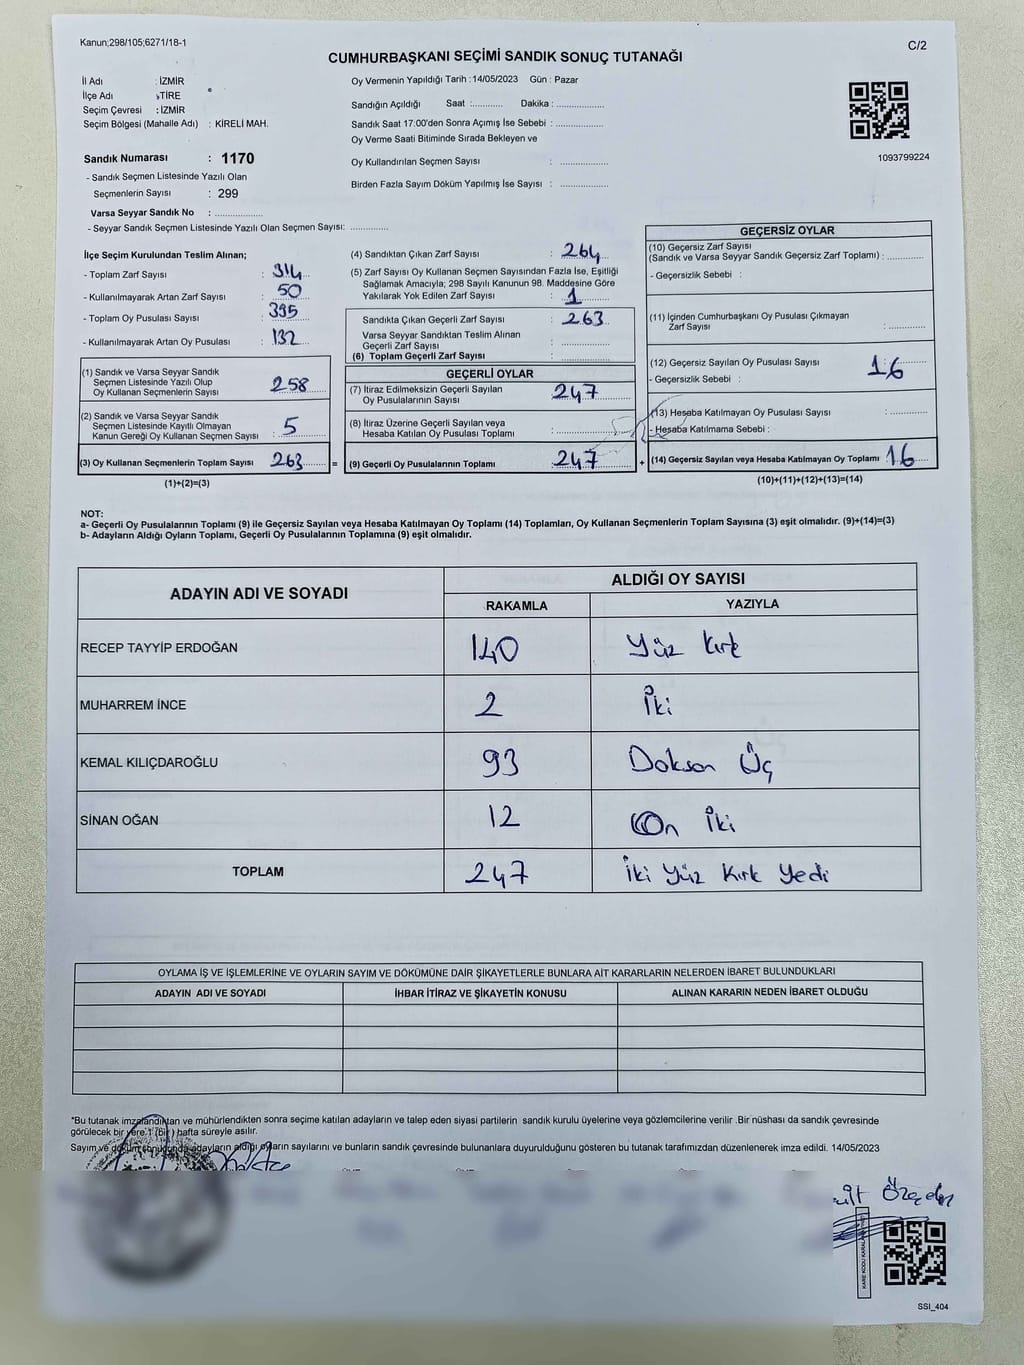 Kanun;298/105;6271/18-1
C/2
CUMHURBAŞKANI SEÇİMİ SANDIK SONUÇ TUTANAĞI
İl Adı : İZMİR
İlçe Adı : TİRE
Seçim Çevresi : İZMİR
Seçim Bölgesi (Mahalle Adı) : KİRELİ MAH.
Oy Vermenin Yapıldığı Tarih : 14/05/2023 Gün : Pazar
Sandığın Açıldığı Saat :........... Dakika : ................
Sandık Saat 17:00'den Sonra Açımış İse Sebebi : ................
Oy Verme Saati Bitiminde Sırada Bekleyen ve
Oy Kullandırılan Seçmen Sayısı : ................
Birden Fazla Sayım Döküm Yapılmış İse Sayısı : ................
1093799224
Sandık Numarası : 1170
- Sandık Seçmen Listesinde Yazılı Olan
Seçmenlerin Sayısı : 299
Varsa Seyyar Sandık No : ................
- Seyyar Sandık Seçmen Listesinde Yazılı Olan Seçmen Sayısı: .............
İlçe Seçim Kurulundan Teslim Alınan;
- Toplam Zarf Sayısı : 314
- Kullanılmayarak Artan Zarf Sayısı : 50
- Toplam Oy Pusulası Sayısı : 395
- Kullanılmayarak Artan Oy Pusulası : 132
(1) Sandık ve Varsa Seyyar Sandık
Seçmen Listesinde Yazılı Olup
Oy Kullanan Seçmenlerin Sayısı : 258
(2) Sandık ve Varsa Seyyar Sandık
Seçmen Listesinde Kayıtlı Olmayan
Kanun Gereği Oy Kullanan Seçmen Sayısı : 5
(3) Oy Kullanan Seçmenlerin Toplam Sayısı : 263 =
(1)+(2)=(3)
(4) Sandıktan Çıkan Zarf Sayısı : 264
(5) Zarf Sayısı Oy Kullanan Seçmen Sayısından Fazla İse, Eşitliği
Sağlamak Amacıyla; 298 Sayılı Kanunun 98. Maddesine Göre
Yakılarak Yok Edilen Zarf Sayısı : 1
Sandıkta Çıkan Geçerli Zarf Sayısı : 263
Varsa Seyyar Sandıktan Teslim Alınan
Geçerli Zarf Sayısı : ................
(6) Toplam Geçerli Zarf Sayısı : ................
GEÇERLİ OYLAR
(7) İtiraz Edilmeksizin Geçerli Sayılan
Oy Pusulalarının Sayısı : 247
(8) İtiraz Üzerine Geçerli Sayılan veya
Hesaba Katılan Oy Pusulası Toplamı : ................
(9) Geçerli Oy Pusulalarının Toplamı : 247 +
GEÇERSİZ OYLAR
(10) Geçersiz Zarf Sayısı
(Sandık ve Varsa Seyyar Sandık Geçersiz Zarf Toplamı) : .............
- Geçersizlik Sebebi :
(11) İçinden Cumhurbaşkanı Oy Pusulası Çıkmayan
Zarf Sayısı : .............
(12) Geçersiz Sayılan Oy Pusulası Sayısı : 16
- Geçersizlik Sebebi :
(13) Hesaba Katılmayan Oy Pusulası Sayısı : .............
- Hesaba Katılmama Sebebi :
(14) Geçersiz Sayılan veya Hesaba Katılmayan Oy Toplamı : 16
(10)+(11)+(12)+(13)=(14)
NOT:
a- Geçerli Oy Pusulalarının Toplamı (9) ile Geçersiz Sayılan veya Hesaba Katılmayan Oy Toplamı (14) Toplamları, Oy Kullanan Seçmenlerin Toplam Sayısına (3) eşit olmalıdır. (9)+(14)=(3)
b- Adayların Aldığı Oyların Toplamı, Geçerli Oy Pusulalarının Toplamına (9) eşit olmalıdır.
ADAYIN ADI VE SOYADI
ALDIĞI OY SAYISI
RAKAMLA YAZIYLA
RECEP TAYYİP ERDOĞAN 140 Yüz Kırk
MUHARREM İNCE 2 İki
KEMAL KILIÇDAROĞLU 93 Doksan Üç
SİNAN OĞAN 12 On İki
TOPLAM 247 İki Yüz Kırk Yedi
OYLAMA İŞ VE İŞLEMLERİNE VE OYLARIN SAYIM VE DÖKÜMÜNE DAİR ŞİKAYETLERLE BUNLARA AİT KARARLARIN NELERDEN İBARET BULUNDUKLARI
ADAYIN ADI VE SOYADI İHBAR İTİRAZ VE ŞİKAYETİN KONUSU ALINAN KARARIN NEDEN İBARET OLDUĞU
*Bu tutanak imzalandıktan ve mühürlendikten sonra seçime katılan adayların ve talep eden siyasi partilerin sandık kurulu üyelerine veya gözlemcilerine verilir .Bir nüshası da sandık çevresinde
görülecek bir yere 1 (Bir) hafta süreyle asılır.
Sayım ve döküm sonucunda adayların aldığı oyların sayılarını ve bunların sandık çevresinde bulunanlara duyurulduğunu gösteren bu tutanak tarafımızdan düzenlenerek imza edildi. 14/05/2023
SSI_404